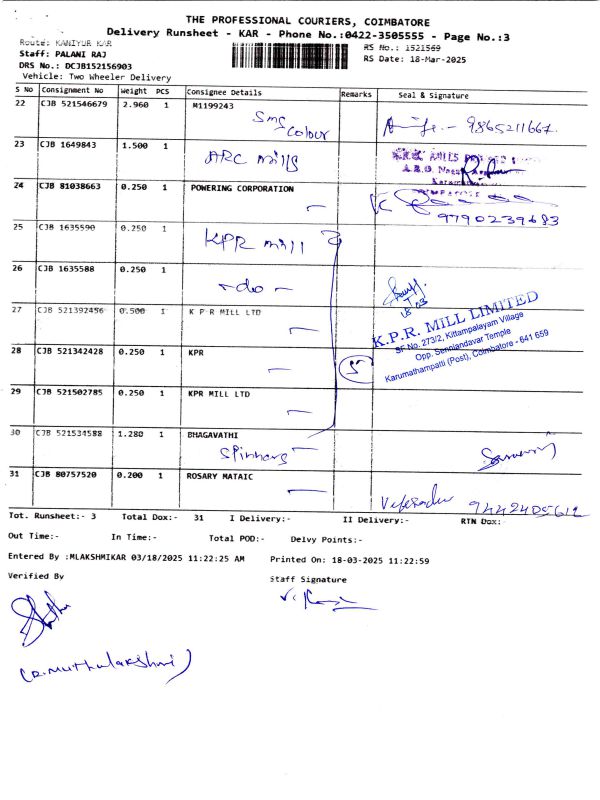 THE PROFESSIONAL COURIERS, COIMBATORE
Delivery Runsheet - KAR - Phone No.:0422-3505555 - Page No.:3
Route: KANIYUR KAR
RS No.: 1521569
Staff: PALANI RAJ
RS Date: 18-Mar-2025
DRS No.: DCJB152156903
Vehicle: Two Wheeler Delivery
S No Consignment No Weight PCS Consignee Details Remarks Seal & Signature
22 CJB 521546679 2.960 1 M1199243
Sms Colour
9865211667.
23 CJB 1649843 1.500 1
ARC mills
24 CJB 81038663 0.250 1 POWERING CORPORATION
9790239683
25 CJB 1635590 0.250 1
KPR mill
26 CJB 1635588 0.250 1
-do-
27 CJB 521392456 0.500 1 K P R MILL LTD
K.P.R. MILL LIMITED
SF No. 273/2, Kittampalayam Village
Opp. Senniandavar Temple
Karumathampatti (Post), Coimbatore - 641 659
28 CJB 521342428 0.250 1 KPR
5
29 CJB 521502785 0.250 1 KPR MILL LTD
30 CJB 521534588 1.280 1 BHAGAVATHI
Spinners
31 CJB 80757520 0.200 1 ROSARY MATAIC
9442405612
Tot. Runsheet:- 3 Total Dox:- 31 I Delivery:- II Delivery:- RTN Dox:-
Out Time:- In Time:- Total POD:- Delvy Points:-
Entered By :MLAKSHMIKAR 03/18/2025 11:22:25 AM Printed On: 18-03-2025 11:22:59
Verified By
Staff Signature
(R.Muthulakshmi)